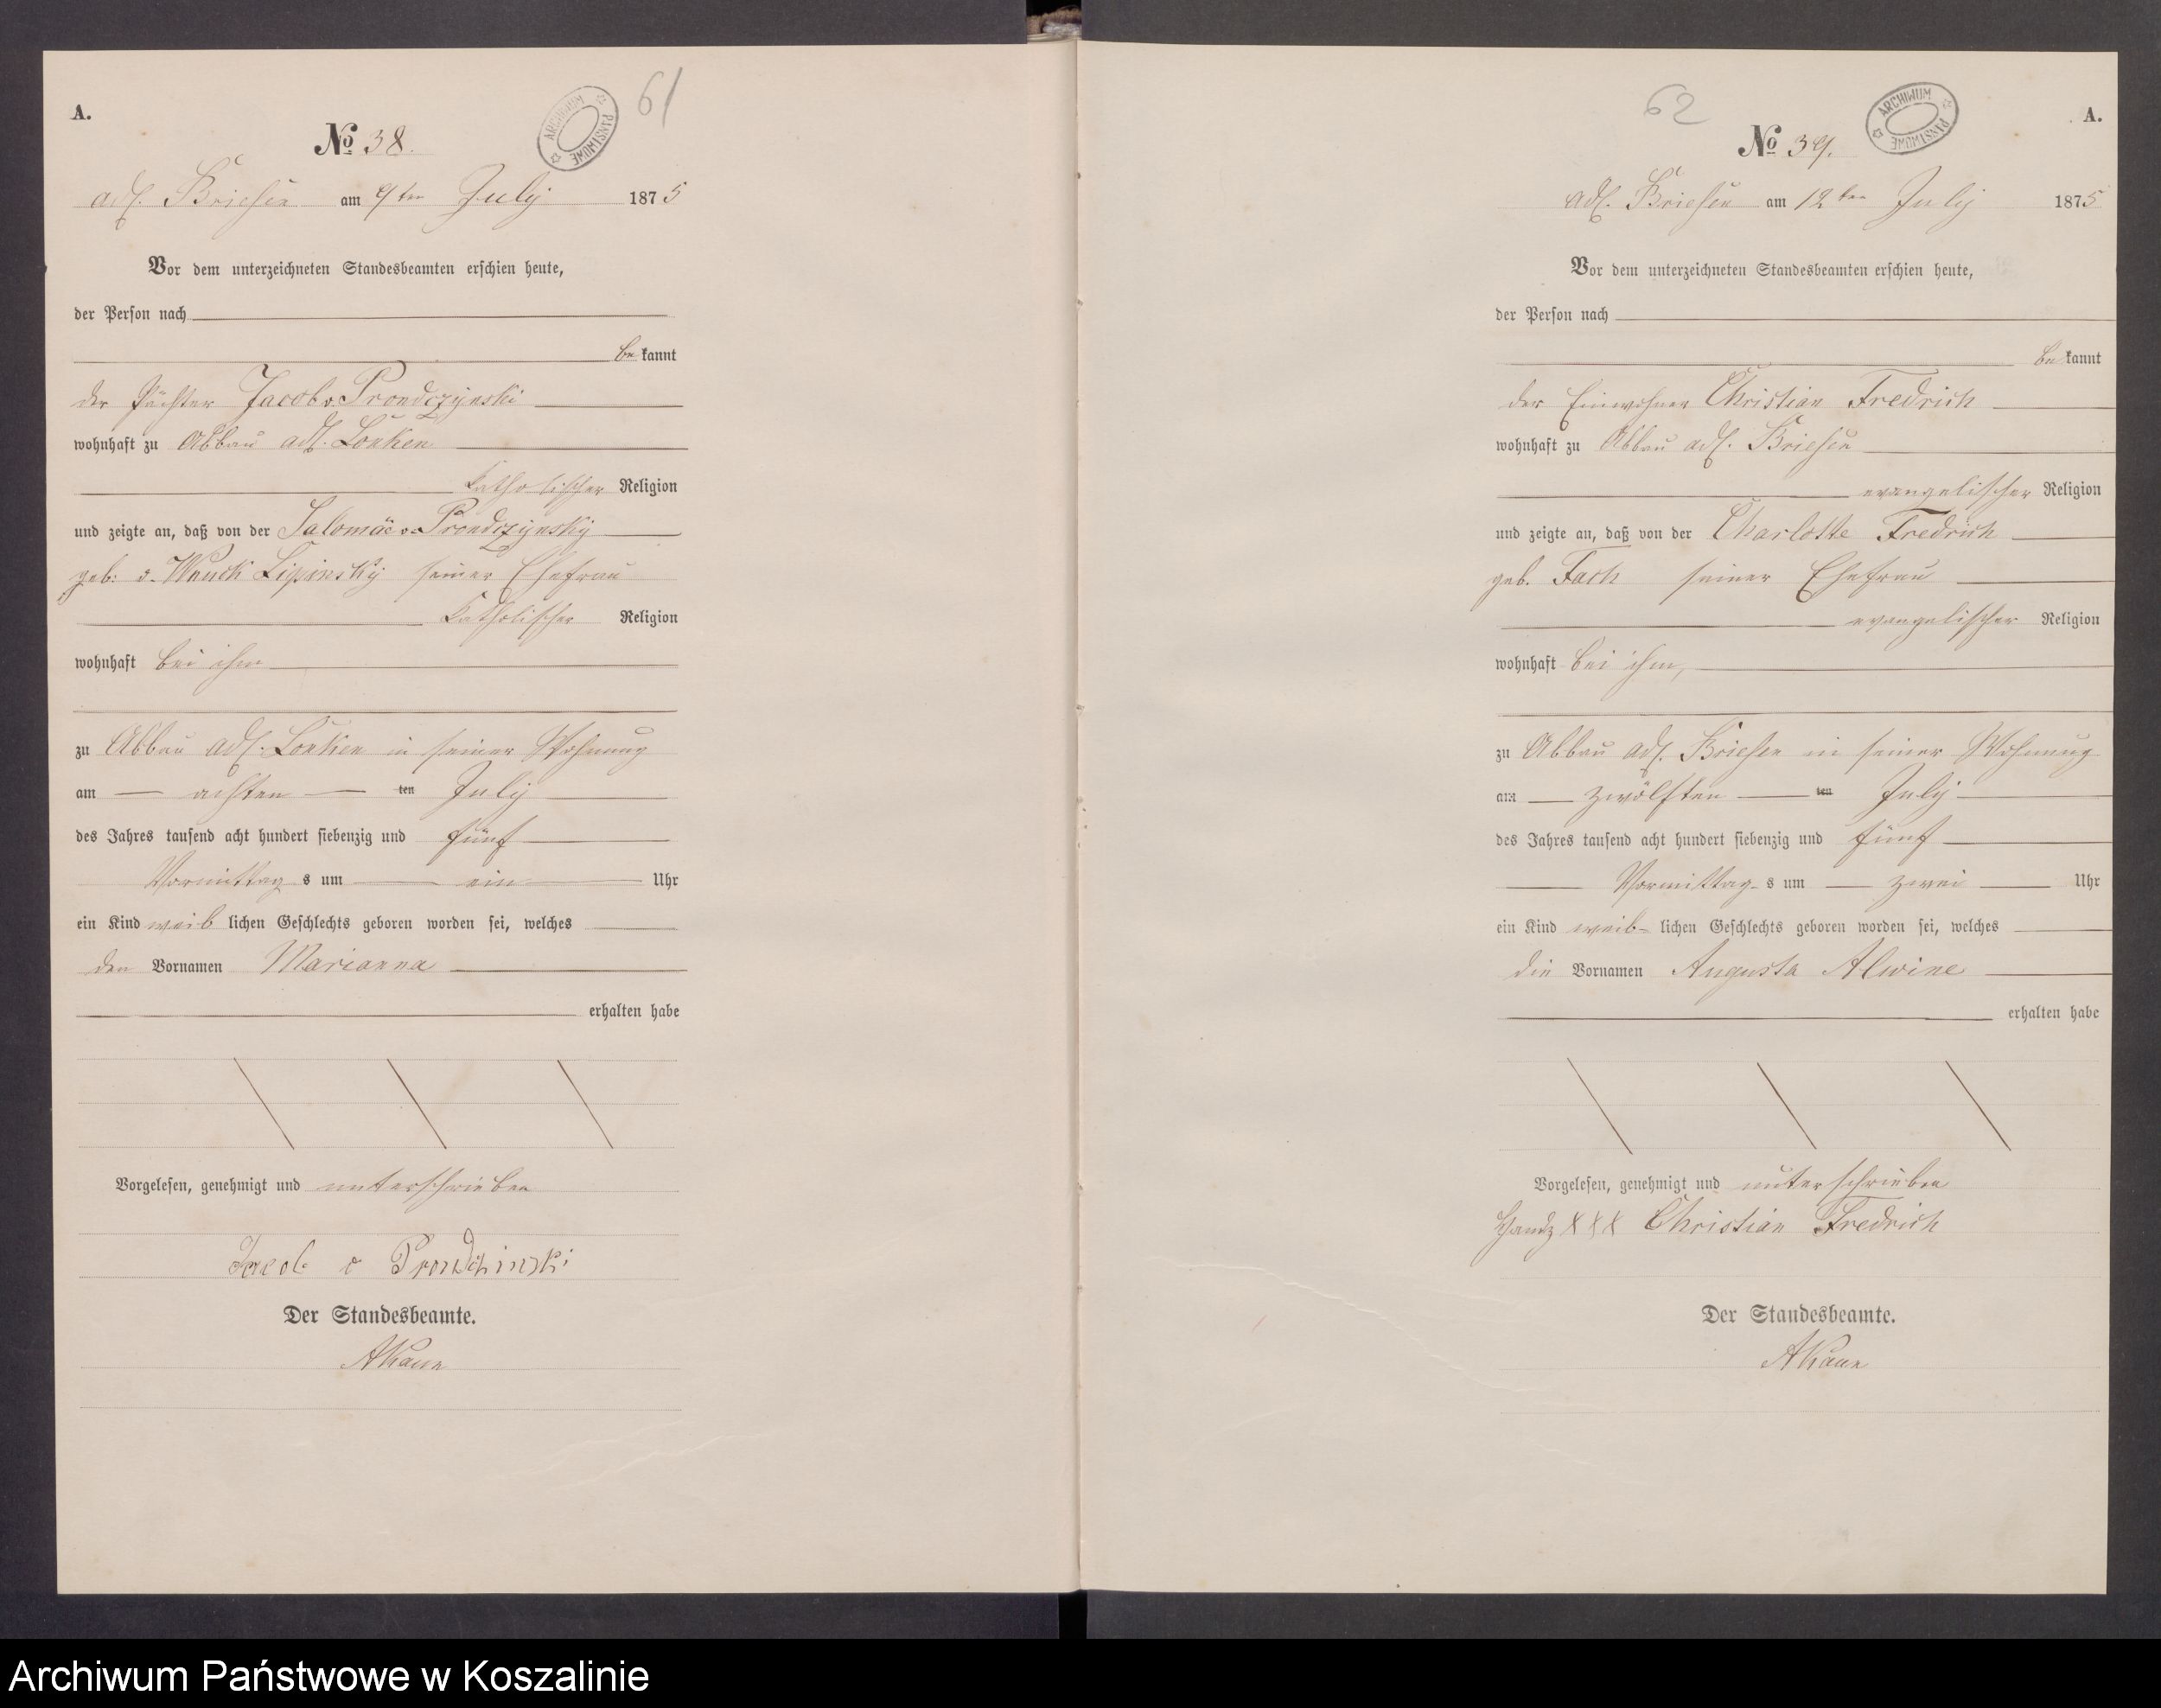 A.
61
ARCHIWUM PAŃSTWOWE
№ 38.
adl. Briesen am 9ten July 1875
Vor dem unterzeichneten Standesbeamten erschien heute,
der Person nach
be kannt
der Pächter Jacob v. Prondczynski
wohnhaft zu Abbau adl. Lonken
katholischer Religion
und zeigte an, daß von der Salomäe v. Prondczynsky
geb: v. Wnuck Lipinsky seiner Ehefrau
katholischer Religion
wohnhaft bei ihm
zu Abbau adl. Lonken in seiner Wohnung
am achten ten July
des Jahres tausend acht hundert siebenzig und fünf
Vormittag s um ein Uhr
ein Kind weib lichen Geschlechts geboren worden sei, welches
den Vornamen Marianna
erhalten habe
Vorgelesen, genehmigt und unterschrieben
Jacob v Prondzinski
Der Standesbeamte.
62
ARCHIWUM PAŃSTWOWE
A.
№ 39.
adl. Briesen am 12ten July 1875
Vor dem unterzeichneten Standesbeamten erschien heute,
der Person nach
be kannt
der Einwohner Christian Fredrich
wohnhaft zu Abbau adl. Briesen
evangelischer Religion
und zeigte an, daß von der Charlotte Fredrich
geb. Fach seiner Ehefrau
evangelischer Religion
wohnhaft bei ihm,
zu Abbau adl. Briesen in seiner Wohnung
am zwölften ten July
des Jahres tausend acht hundert siebenzig und fünf
Vormittag- s um zwei Uhr
ein Kind weib- lichen Geschlechts geboren worden sei, welches
die Vornamen Augusta Alwine
erhalten habe
Vorgelesen, genehmigt und unterschrieben
Handz XXX Christian Fredrich
Der Standesbeamte.
Archiwum Państwowe w Koszalinie